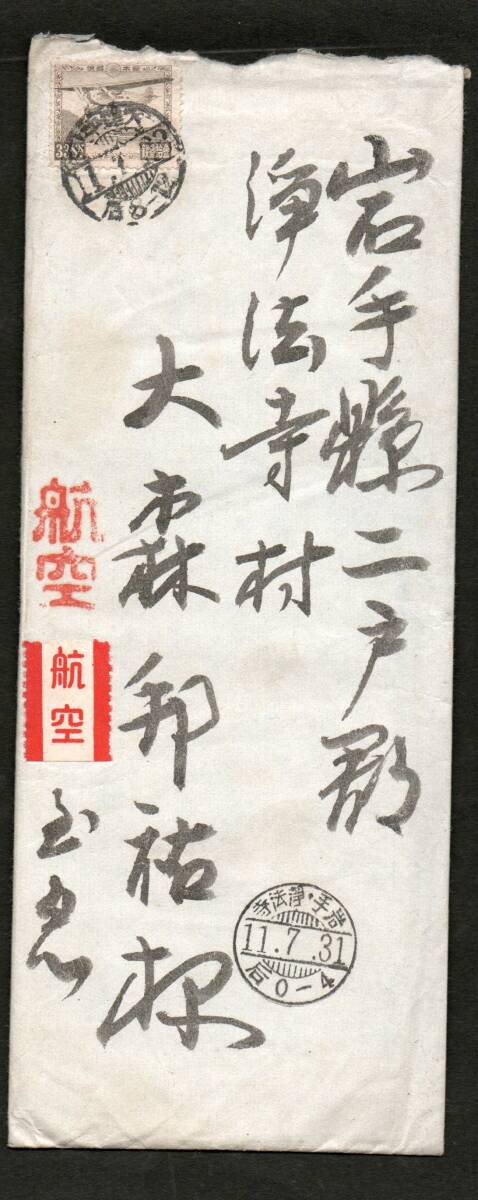 岩手縣二戸郡
淨法寺村
大森邦祐様
至急
航空
航空
岩手・淨法寺
11.7.31
后0-4
后0-4